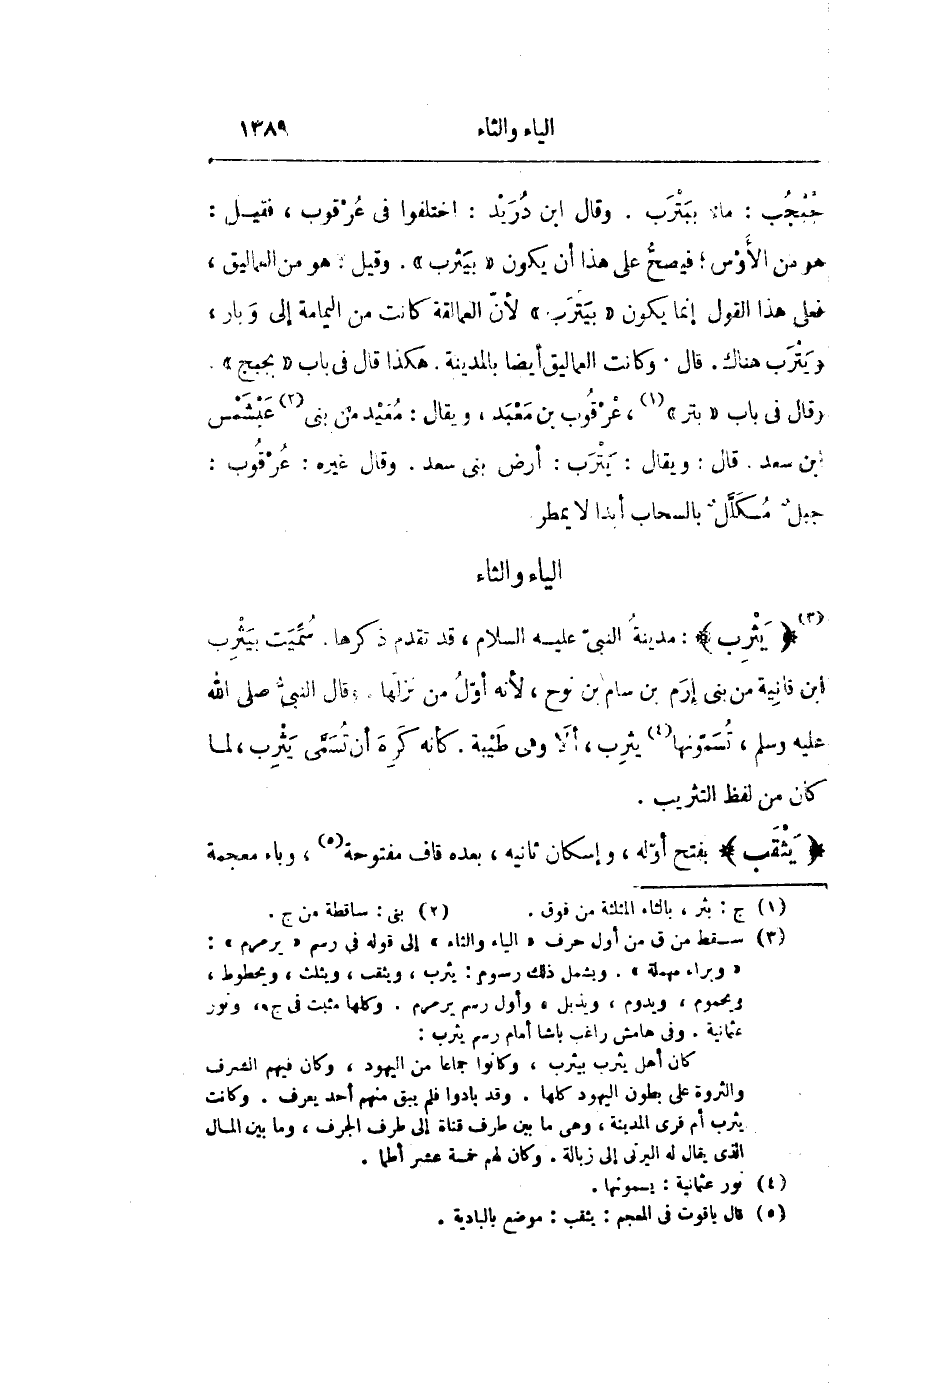 الياء والثاء ١٣٨٩
جُبْجُب : ماء بيَتْرَب . وقال ابن دُرَيْد : اختلفوا فى عُرْقوب ، فقيل :
هو من الأَوْس ؛ فيصحُّ على هذا أن يكون « بيَثرب » . وقيل : هو من العماليق ،
فعلى هذا القول إنما يكون « بيَتَرَب » لأنّ العمالقة كانت من اليمامة إلى وَبار ،
ويَتْرَب هناك . قال : وكانت العماليق أيضا بالمدينة . هكذا قال فى باب « بجبج » .
وقال فى باب « بتر »(١) ، عُرْقُوب بن مَعْبَد ، ويقال : مُعَيْد من بنى(٢) عَبْشَمْس
ابن سعد . قال : ويقال : يَتْرَب : أرض بنى سعد . وقال غيره : عُرْقُوب :
جبل مُكَلَّل بالسحاب أبدا لا يمطر
الياء والثاء
(٣) ﴿ يَثْرِب ﴾ : مدينةُ النبىّ عليه السلام ، قد تقدم ذكرها . سُمِّيَت بيَثْرِب
ابن قانِية من بنى إرَم بن سام بن نوح ، لأنه أوّلُ من نزلَها . وقال النبىُّ صلى الله
عليه وسلم ، تُسَمّونها(٤) يثرِب ، ألَا وهى طَيْبة . كأنه كَرِهَ أن تُسَمَّى يَثْرِب ، لما
كان من لفظ التثريب .
﴿ يَثْقَب ﴾ بفتح أوّله ، وإسكان ثانيه ، بعده قاف مفتوحة(٥) ، وباء معجمة
(١) ج : بثر ، بالثاء المثلثة من فوق . (٢) بنى : ساقطة من ج .
(٣) سقط من ق من أول حرف « الياء والثاء » إلى قوله فى رسم « يرمرم » :
« وبراء مهملة » . ويشمل ذلك رسوم : يثرب ، ويثقب ، ويثلث ، ويحطوط ،
ويحموم ، ويدوم ، ويذبل ، وأول رسم يرمرم . وكلها مثبت فى ج ، ونور
عثمانية . وفى هامش راغب باشا أمام رسم يثرب :
كان أهل يثرب بيثرب ، وكانوا جماعا من اليهود ، وكان فيهم الشرف
والثروة على بطون اليهود كلها . وقد بادوا فلم يبق منهم أحد يعرف . وكانت
يثرب أم قرى المدينة ، وهى ما بين طرف قناة إلى طرف الجرف ، وما بين المال
الذى يقال له البرنى إلى زبالة . وكان لهم خمسة عشر أطما .
(٤) نور عثمانية : يسمونها .
(٥) قال ياقوت فى المعجم : يثقب : موضع بالبادية .